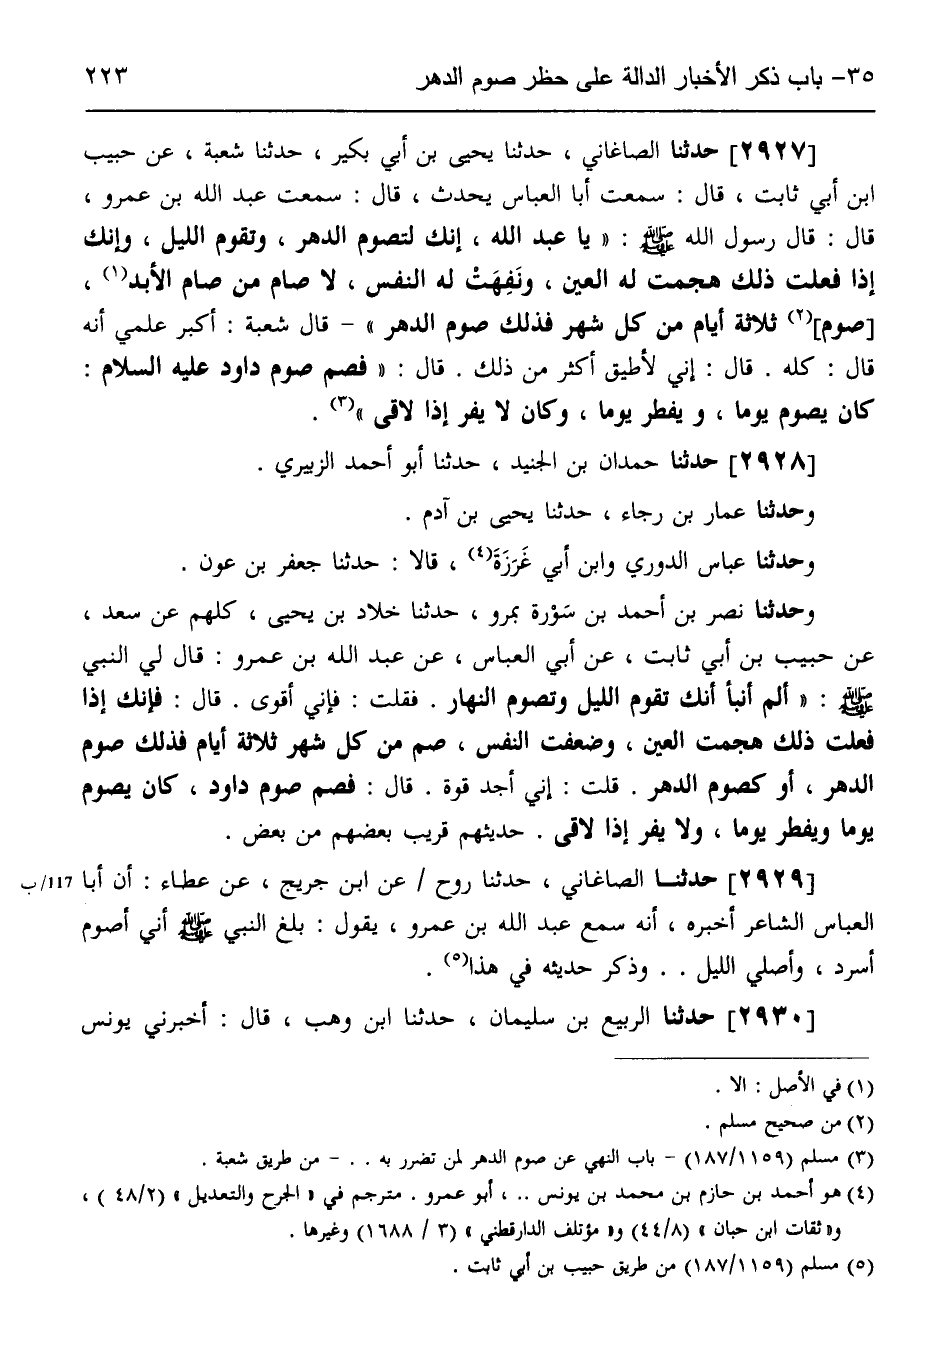 ٣٥- باب ذكر الأخبار الدالة على حظر صوم الدهر ٢٢٣
[٢٩٢٧] حدثنا الصاغاني ، حدثنا يحيى بن أبي بكير ، حدثنا شعبة ، عن حبيب
ابن أبي ثابت ، قال : سمعت أبا العباس يحدث ، قال : سمعت عبد الله بن عمرو ،
قال : قال رسول الله ﷺ : « يا عبد الله ، إنك لتصوم الدهر ، وتقوم الليل ، وإنك
إذا فعلت ذلك هجمت له العين ، ونَفِهَتْ له النفس ، لا صام من صام الأبد(١) ،
[صوم](٢) ثلاثة أيام من كل شهر فذلك صوم الدهر » - قال شعبة : أكبر علمي أنه
قال : كله . قال : إني لأطيق أكثر من ذلك . قال : « فصم صوم داود عليه السلام :
كان يصوم يوما ، و يفطر يوما ، وكان لا يفر إذا لاقى »(٣) .
[٢٩٢٨] حدثنا حمدان بن الجنيد ، حدثنا أبو أحمد الزبيري .
وحدثنا عمار بن رجاء ، حدثنا يحيى بن آدم .
وحدثنا عباس الدوري وابن أبي غَرَزَةَ(٤) ، قالا : حدثنا جعفر بن عون .
وحدثنا نصر بن أحمد بن سَوْرة بمرو ، حدثنا خلاد بن يحيى ، كلهم عن سعد ،
عن حبيب بن أبي ثابت ، عن أبي العباس ، عن عبد الله بن عمرو : قال لي النبي
ﷺ : « ألم أنبأ أنك تقوم الليل وتصوم النهار . فقلت : فإني أقوى . قال : فإنك إذا
فعلت ذلك هجمت العين ، وضعفت النفس ، صم من كل شهر ثلاثة أيام فذلك صوم
الدهر ، أو كصوم الدهر . قلت : إني أجد قوة . قال : فصم صوم داود ، كان يصوم
يوما ويفطر يوما ، ولا يفر إذا لاقى . حديثهم قريب بعضهم من بعض .
[٢٩٢٩] حدثنـا الصاغاني ، حدثنا روح / عن ابن جريج ، عن عطاء : أن أبا 117/ب
العباس الشاعر أخبره ، أنه سمع عبد الله بن عمرو ، يقول : بلغ النبي ﷺ أني أصوم
أسرد ، وأصلي الليل . . وذكر حديثه في هذا(٥) .
[٢٩٣٠] حدثنا الربيع بن سليمان ، حدثنا ابن وهب ، قال : أخبرني يونس
(١) في الأصل : الا .
(٢) من صحيح مسلم .
(٣) مسلم (١٨٧/١١٥٩) - باب النهي عن صوم الدهر لمن تضرر به . . - من طريق شعبة .
(٤) هو أحمد بن حازم بن محمد بن يونس .. ، أبو عمرو . مترجم في « الجرح والتعديل » (٤٨/٢ ) ،
و« ثقات ابن حبان » (٤٤/٨) و« مؤتلف الدارقطني » (٣ / ١٦٨٨) وغيرها .
(٥) مسلم (١٨٧/١١٥٩) من طريق حبيب بن أبي ثابت .